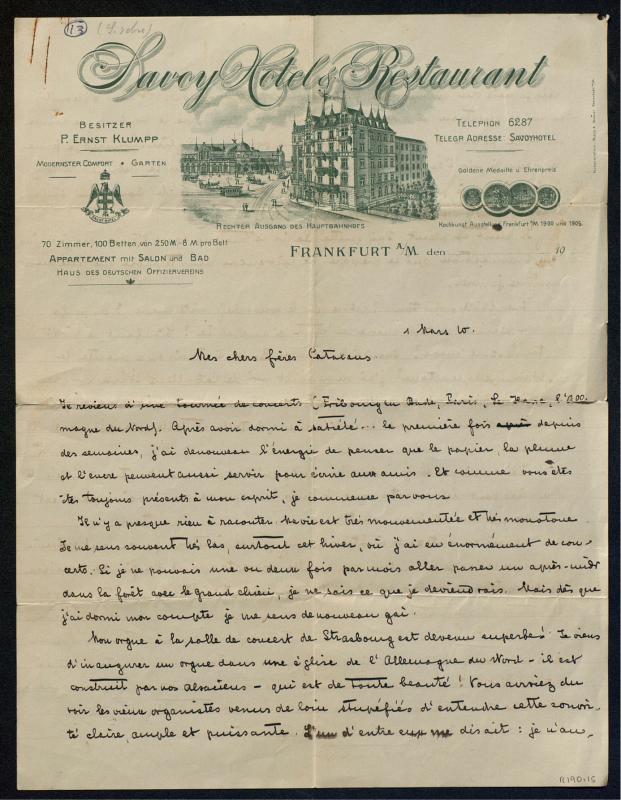 13
Savoy Hotel & Restaurant
BESITZER
P. ERNST KLUMPP
MODERNSTER COMFORT • GARTEN
SAVOY HOTEL
TELEPHON 6287
TELEGR. ADRESSE: SAVOYHOTEL
Goldene Medaille u Ehrenpreis
Kochkunst Ausstellung Frankfurt a/M 1900 und 1905.
RECHTER AUSGANG DES HAUPTBAHNHOFS
70 Zimmer, 100 Betten, von 2.50 M.-8 M. pro Bett
APPARTEMENT mit SALON und BAD
HAUS DES DEUTSCHEN OFFIZIERVEREINS
FRANKFURT A/M. den 19
1 Mars 10.
Mes chers frères Catalans
Je reviens d'une tournée de concerts (Fribourg en Bade, Paris, Le Haye, l'Alle
magne du Nord). Après avoir dormi à satiété... le première fois après depuis
des semaines, j'ai de nouveau l'énergie de penser que le papier, la plume
et l'encre peuvent aussi servir pour écrire aux amis. Et comme vous êtes
êtes toujours présents à mon esprit, je commence par vous
Il n'y a presque rien à raconter. Ma vie est très mouvementée et très monotone.
Je me sens souvent très las, surtout cet hiver, où j'ai eu énormément de con-
certs. Si je ne pouvais une ou deux fois par mois aller passer un après-midi
dans la forêt avec le grand chien, je ne sais ce que je deviendrais. Mais dès que
j'ai dormi mon compte je me sens de nouveau gai.
Mon orgue à la salle de concert de Strasbourg est devenu superbe! Je viens
d'inaugurer un orgue dans une église de l'Allemagne du Nord - il est
construit par nos alsaciens - qui est de toute beauté! Vous auriez du
voir les vieux organistes venus de loin stupéfiés d'entendre cette sonori-
té claire, ample et puissante. L'un d'entre eux me disait: je n'au-
R190.15